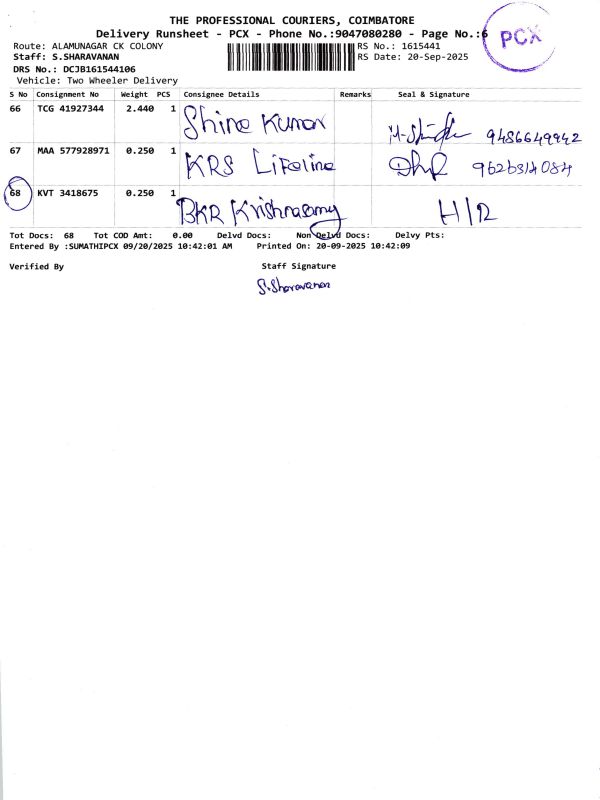 THE PROFESSIONAL COURIERS, COIMBATORE
Delivery Runsheet - PCX - Phone No.:9047080280 - Page No.:6
PCX
Route: ALAMUNAGAR CK COLONY RS No.: 1615441
Staff: S.SHARAVANAN RS Date: 20-Sep-2025
DRS No.: DCJB161544106
Vehicle: Two Wheeler Delivery
S No Consignment No Weight PCS Consignee Details Remarks Seal & Signature
66 TCG 41927344 2.440 1 Shine Kumar 9486649942
67 MAA 577928971 0.250 1 KRS Lifeline 9626314084
68 KVT 3418675 0.250 1 BKR Krishnasamy H/R
Tot Docs: 68 Tot COD Amt: 0.00 Delvd Docs: Non Delvd Docs: Delvy Pts:
Entered By :SUMATHIPCX 09/20/2025 10:42:01 AM Printed On: 20-09-2025 10:42:09
Verified By Staff Signature
S.Sharavanan